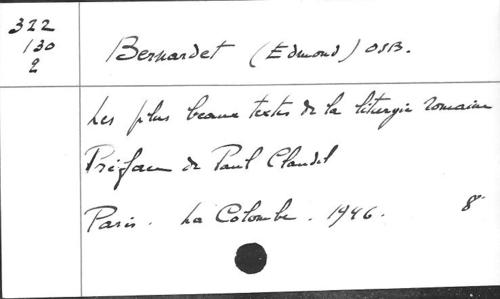 322
130
2
Bernardet (Edmond) OSB.
Les plus beaux textes de la liturgie romaine
Préface de Paul Claudel
Paris. La Colombe. 1946. 8°